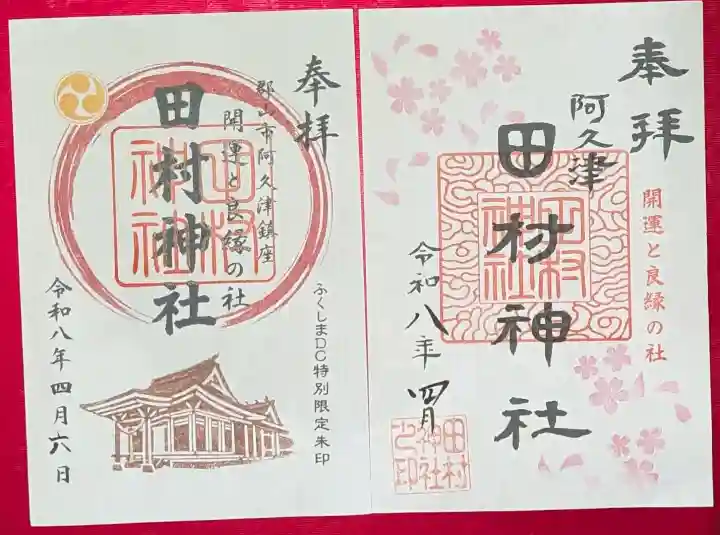 奉拝
阿久津
田村神社
開運と良縁の社
令和八年四月
田村
神社
之印
田村
神社
奉拝
郡山市阿久津鎮座
開運と良縁の社
田村神社
田村
神社
ふくしまDC特別限定朱印
令和八年四月六日